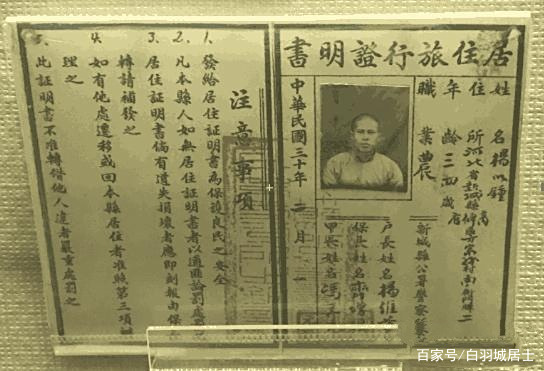 居住旅行證明書
姓名楊以鍾
住所河北省新城縣
年齡三四歲
職業農
新城縣公署警察
戶長姓名楊維
保長姓名
甲長姓名馮
中華民國三十年 三月 一
注意事項
1. 發給居住証明書為保護良民之安全
2. 凡本縣人如無居住証明書者以通匪論罰處
3. 居住証明書倘有遺失損壞者應即刻報由保
轉請補發之
4. 如有他處遷移或回本縣居住者准照第三項辦
理之
5. 此証明書不准轉借他人違者嚴重處罰之
百家号/白羽城居士